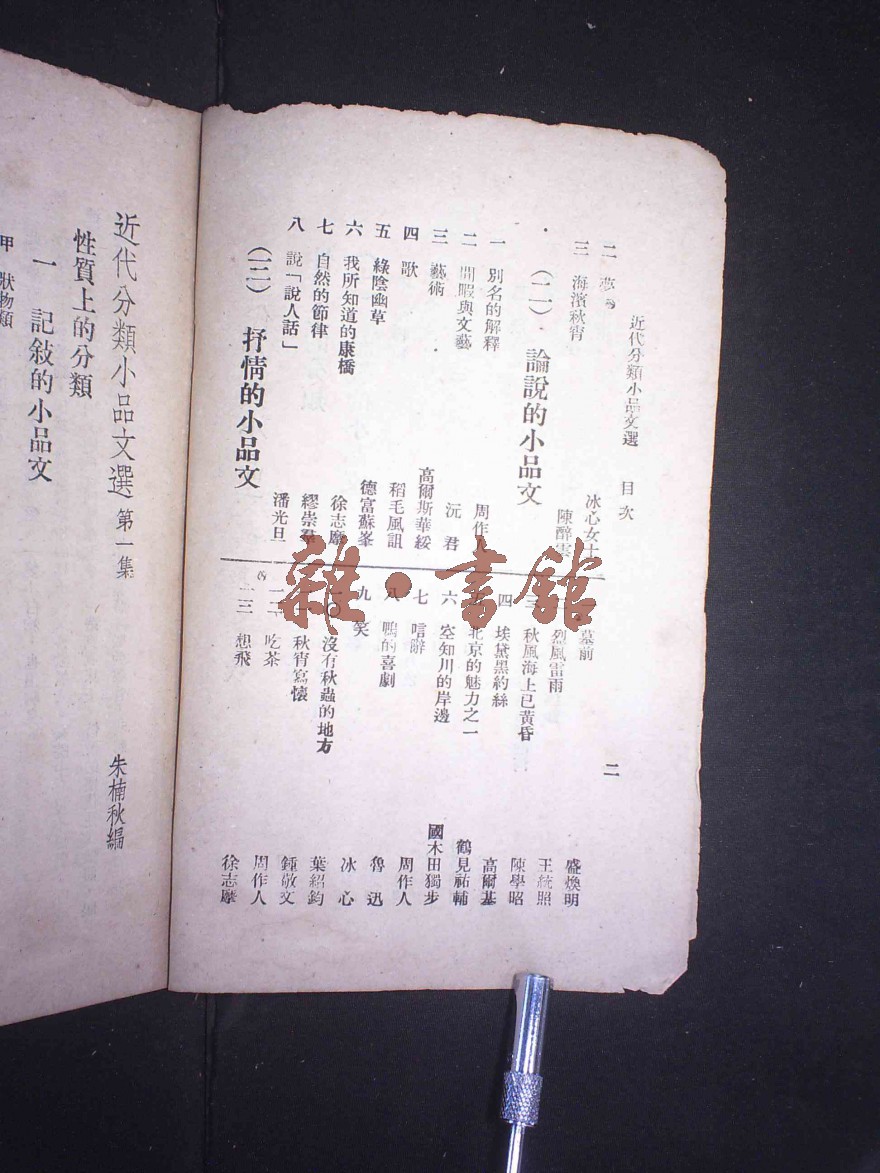 近代分類小品文選 目次 二
二 夢 冰心女士
三 海濱秋宵 陳醉雲
(二) 論說的小品文
一 別名的解釋 周作人
二 閒暇與文藝 沅君
三 藝術 高爾斯華綏
四 歌 稻毛風詛
五 綠陰幽草 德富蘇峯
六 我所知道的康橋 徐志摩
七 自然的節律 繆崇羣
八 說「說人話」 潘光旦
(三) 抒情的小品文
墓前 盛煥明
烈風雷雨 王統照
三 秋風海上已黃昏 陳學昭
四 埃黛黑約絲 高爾基
北京的魅力之一 鶴見祐輔
六 空知川的岸邊 國木田獨步
七 唁辭 周作人
八 鴨的喜劇 魯迅
九 笑 冰心
一〇 沒有秋蟲的地方 葉紹鈞
秋宵寫懷 鍾敬文
一二 吃茶 周作人
一三 想飛 徐志摩
近代分類小品文選 第一集 朱楠秋編
性質上的分類
一 記敍的小品文
甲 狀物類
雜·書館